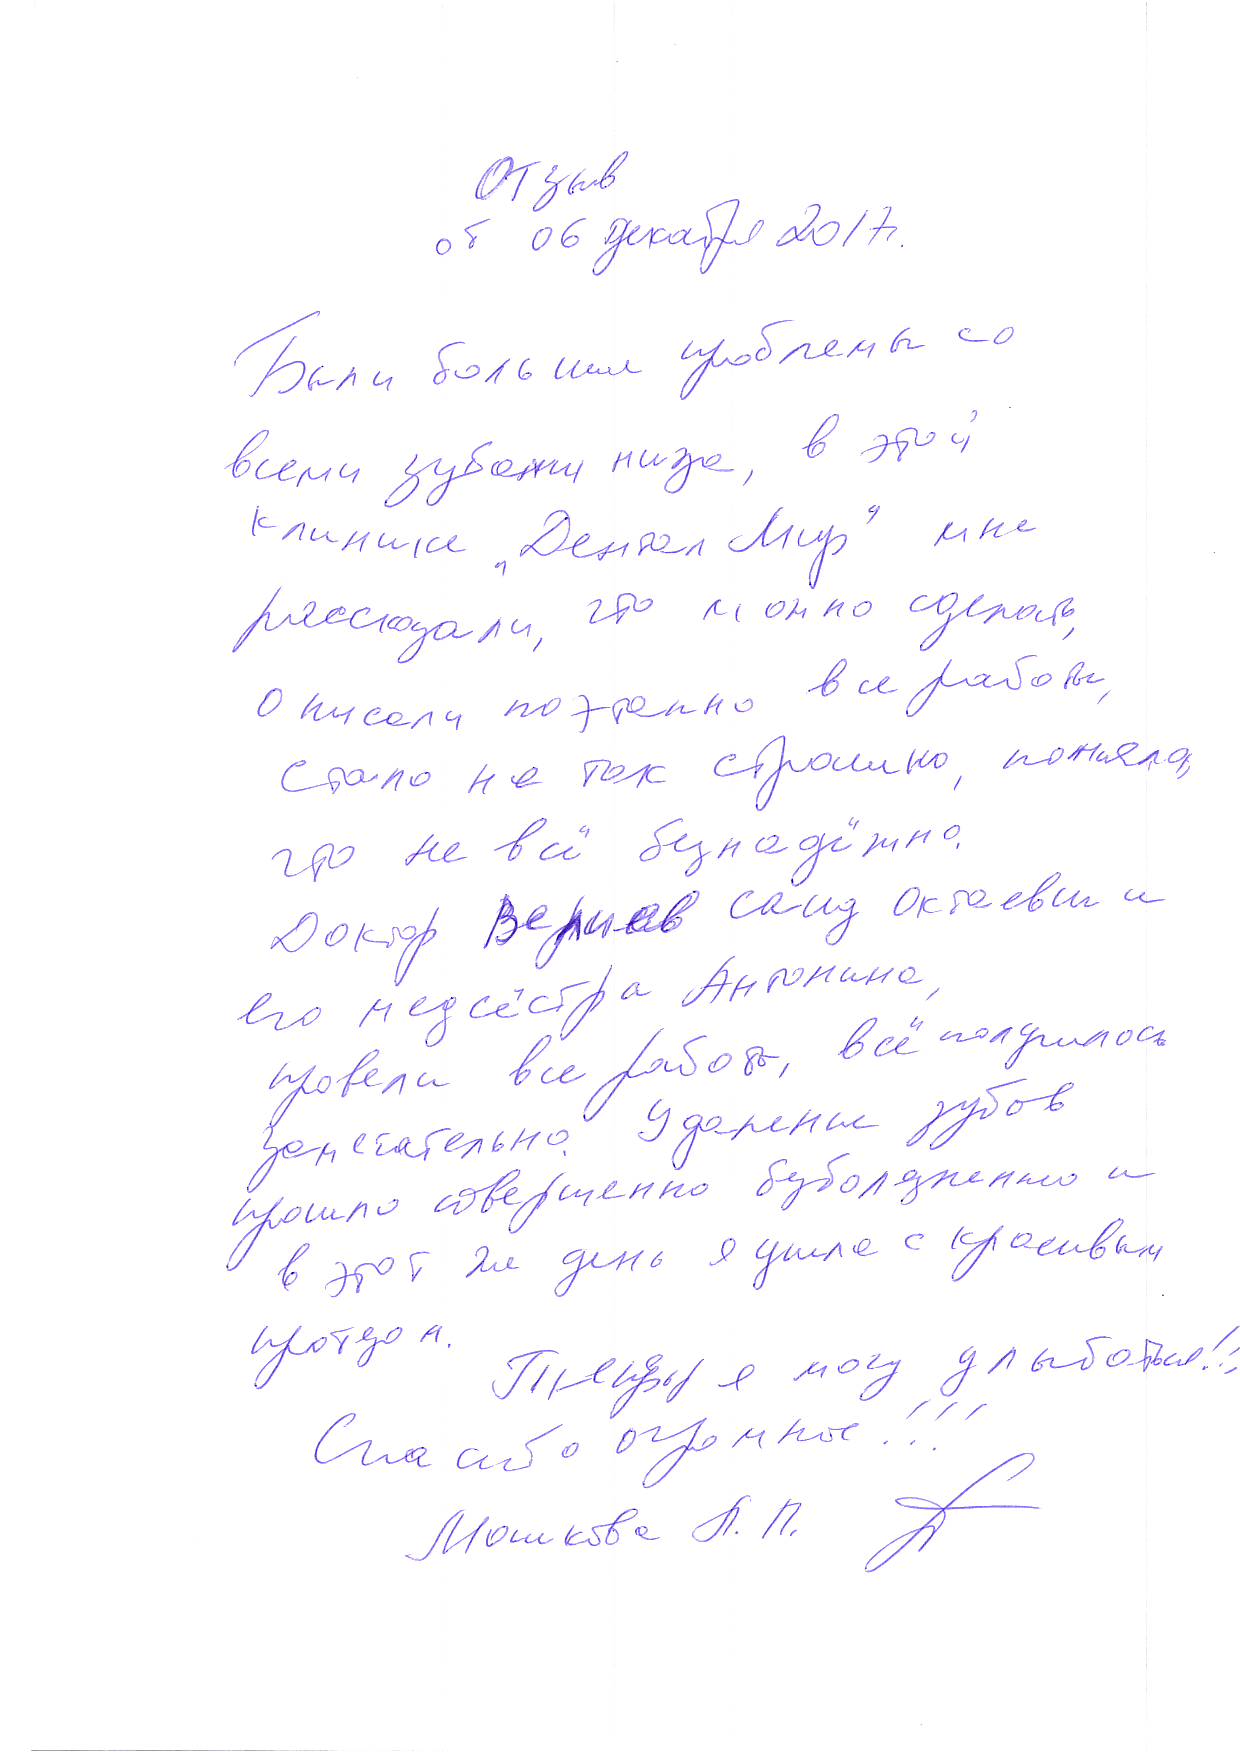 Отзыв
от 06 декабря 2017г.
Были большие проблемы со
всеми зубами низа, в этой
клинике „Дентал Мир" мне
рассказали, что можно сделать,
описали поэтапно все работы,
стало не так страшно, поняла,
что не всё безнадёжно.
Доктор Саид Октаевич и
его медсёстра Антонина,
провели все работы, всё получилось
замечательно. Удаление зубов
прошло совершенно безболезненно и
в этот же день я ушла с красивым
протезом.
Теперь я могу улыбаться!!!
Спасибо огромное!!!
Мошкова Л. П.